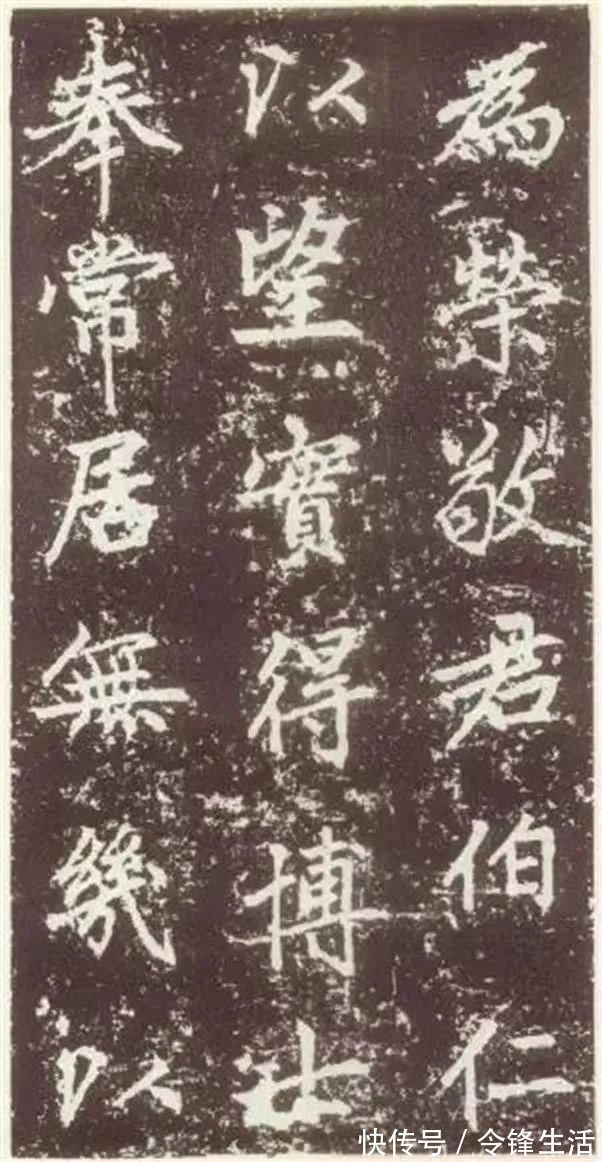 為榮敬君伯仁
以望實得博士
奉常居無幾以
快传号 / 令锋生活